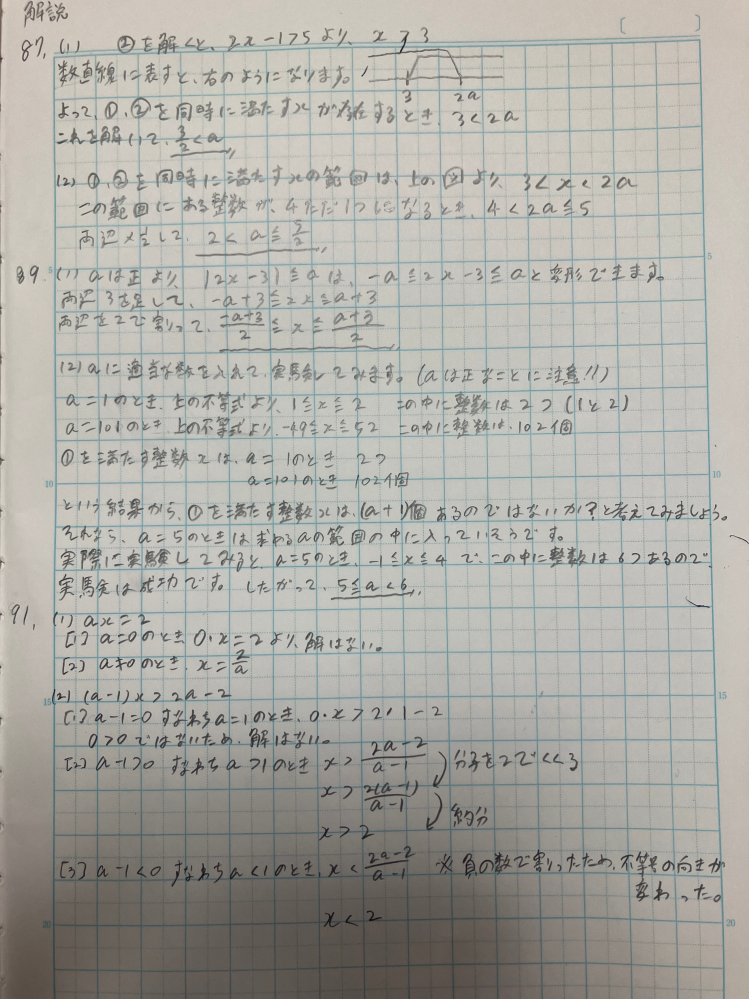 解説
87, (1) ②を解くと、2x-1>5 より、x>3
数直線に表すと、右のようになります。
3 2a
よって、①、②を同時に満たすxが存在するとき、3<2a
これを解いて、3/2<a
(2) ①、②を同時に満たすxの範囲は、上の図より、3<x<2a
この範囲にある整数が、4ただ1つになるとき、4<2a≦5
両辺 して、2<a≦5/2
89 (1) aは正より、|2x-3|≦a は、-a≦2x-3≦aと変形できます。
両辺3を足して、-a+3≦2x≦a+3
両辺を2で割って、(-a+3)/2≦x≦(a+3)/2
(2) aに適当な数を入れて、実験してみます。(aは正なことに注意!!)
a=1のとき、上の不等式より、1≦x≦2 この中に整数は2つ (1と2)
a=101のとき、上の不等式より、-49≦x≦52 この中に整数は、102個
①を満たす整数xは、a=1のとき 2つ
a=101のとき 102個
という結果から、①を満たす整数xは、(a+1)個あるのではないか?と考えてみましょう。
それなら、a=5のときは求めるaの範囲の中に入っていそうです。
実際に実験してみると、a=5のとき、-1≦x≦4で、この中に整数は6つあるので
実験は成功です。したがって、5≦a<6
91, (1) ax=2
[1] a=0のとき、0・x=2より、解はない。
[2] a≠0のとき、x=2/a
(2) (a-1)x>2a-2
[1] a-1=0 すなわちa=1のとき、0・x>2・1-2
0>0ではないため、解はない。
[2] a-1>0 すなわちa>1のとき x>(2a-2)/(a-1)
分子を2でくくる
x>2(a-1)/(a-1)
約分
x>2
[3] a-1<0 すなわちa<1のとき、x<(2a-2)/(a-1) ※負の数で割ったため、不等号の向きが
変わった。
x<2